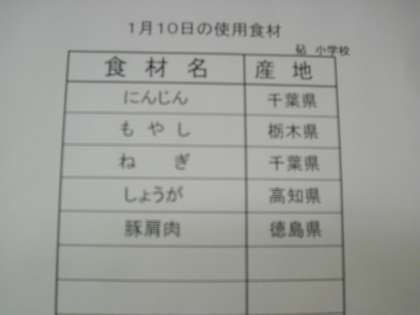 1月10日の使用食材
砧 小学校
食 材 名 産 地
にんじん 千葉県
も や し 栃木県
ね ぎ 千葉県
しょうが 高知県
豚肩肉 徳島県